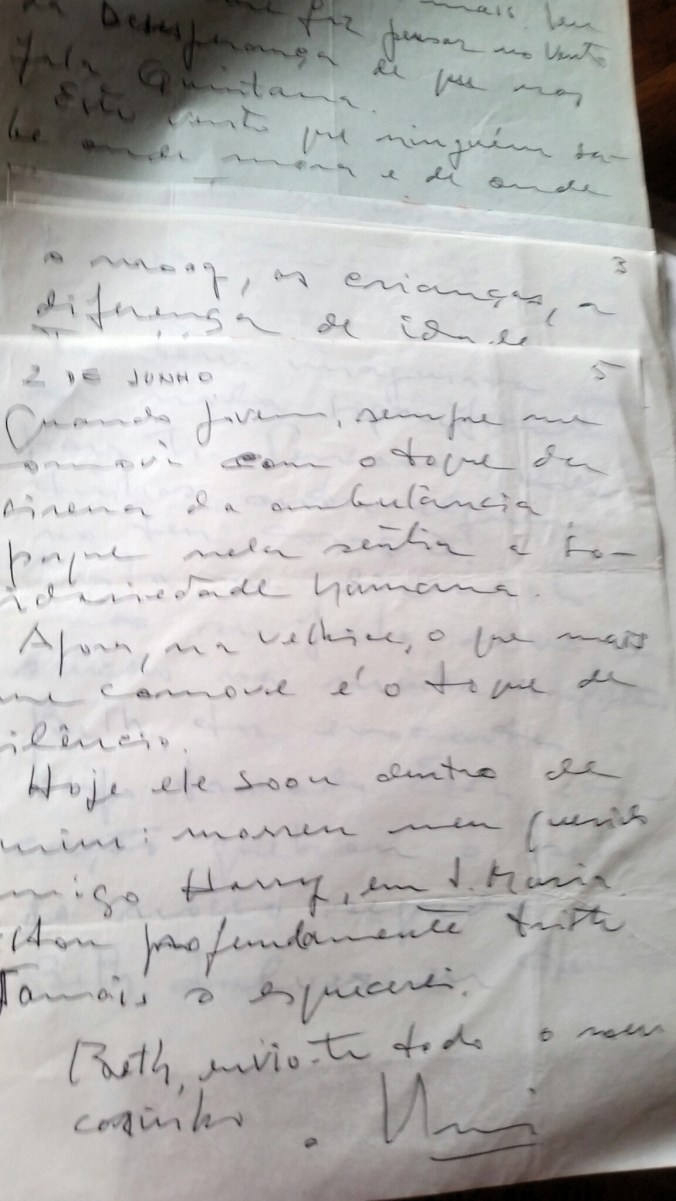 mais. Em
da Desesperança
me faz pensar no vento
de que nos
fala Quintana.
Este vento que ninguém sa-
be onde mora e de onde
3
o moço, as crianças, a
diferença de idade
2 DE JUNHO 5
Quando jovem, sempre me
comovi com o toque da
sirena da ambulância
porque nela sentia a so-
idariedade humana.
Agora, na velhice, o que mais
me comove é o toque de
ilêncio.
Hoje ele soou dentro de
mim: morreu meu querido
migo Harry, em S. Maria.
stou profundamente triste
Jamais o esquecerei.
Beth, envio-te todo o meu
carinho.